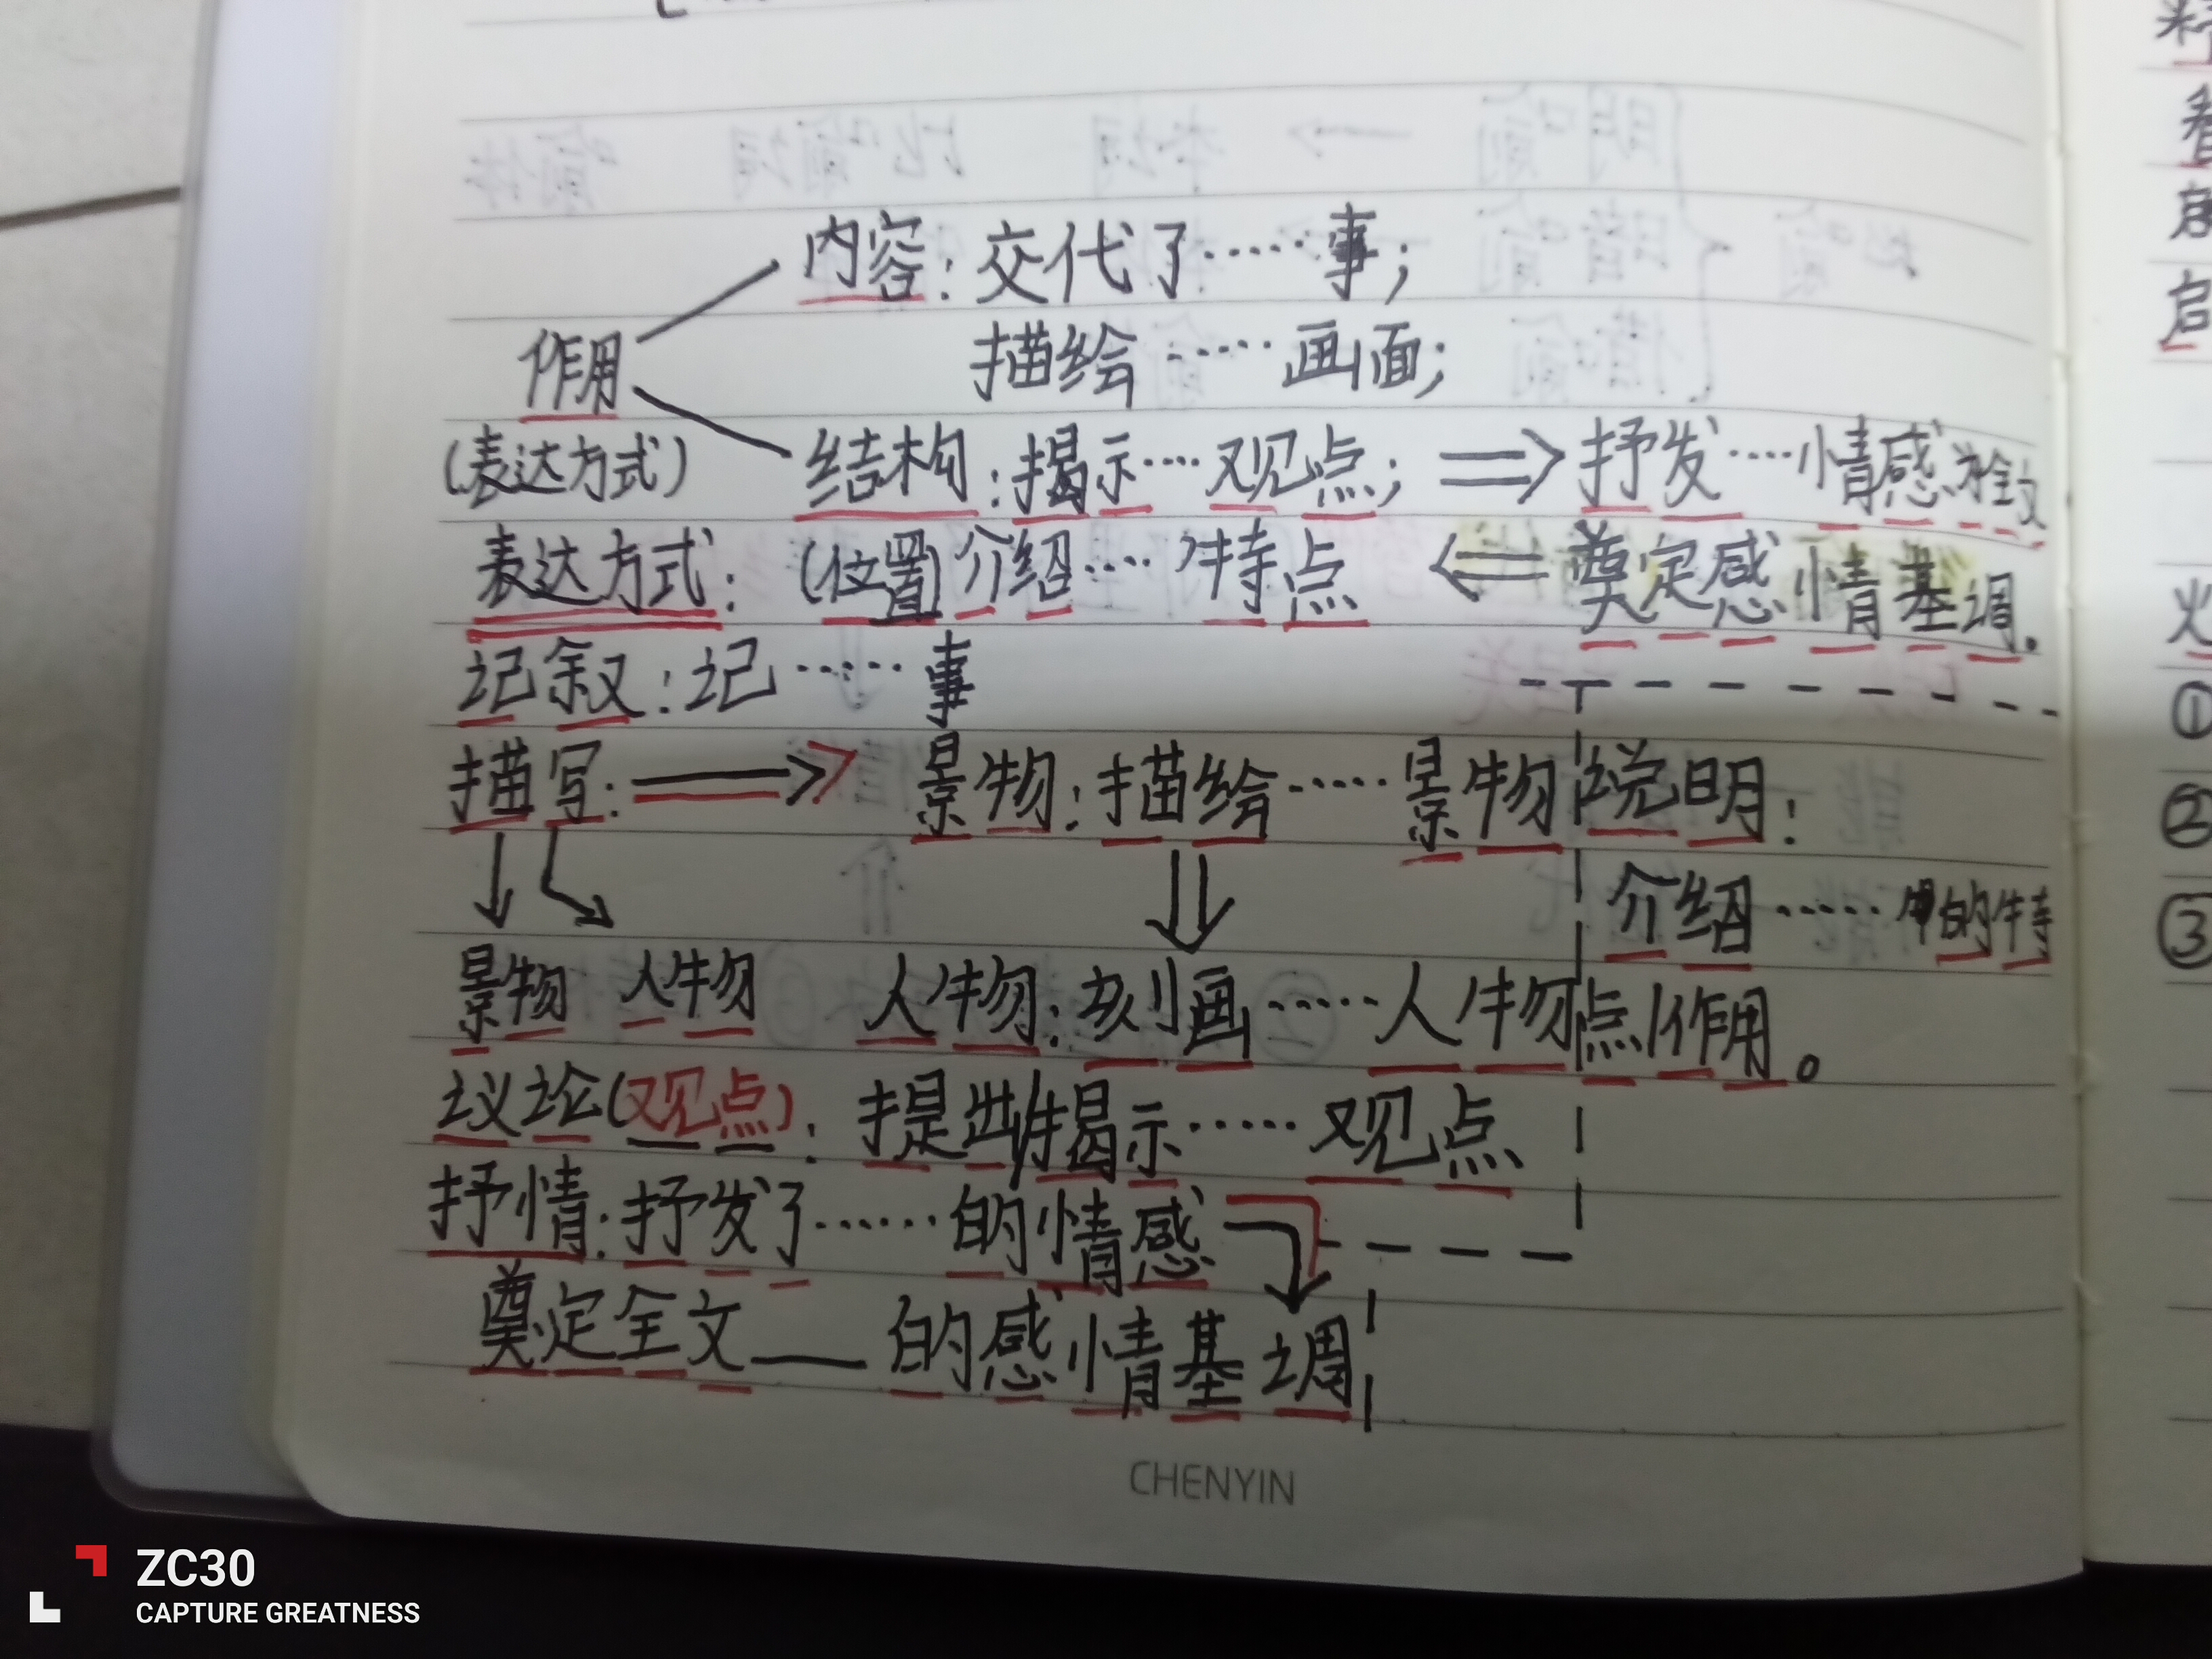 内容：交代了……事；
作用
描绘……画面；
(表达方式)
结构：揭示……观点； ⇒ 抒发……情感
表达方式： (位置)介绍……特点 ⇐ 奠定感情基调.
记叙：记……事
描写： ⇒ 景物：描绘……景物
说明：
介绍……的特
景物 人物 人物：刻画……人物
点/作用。
议论(观点)：提出/揭示……观点
抒情：抒发了……的情感
奠定全文——的感情基调
CHENYIN
精
看
启
火
①
②
③
ZC30
CAPTURE GREATNESS